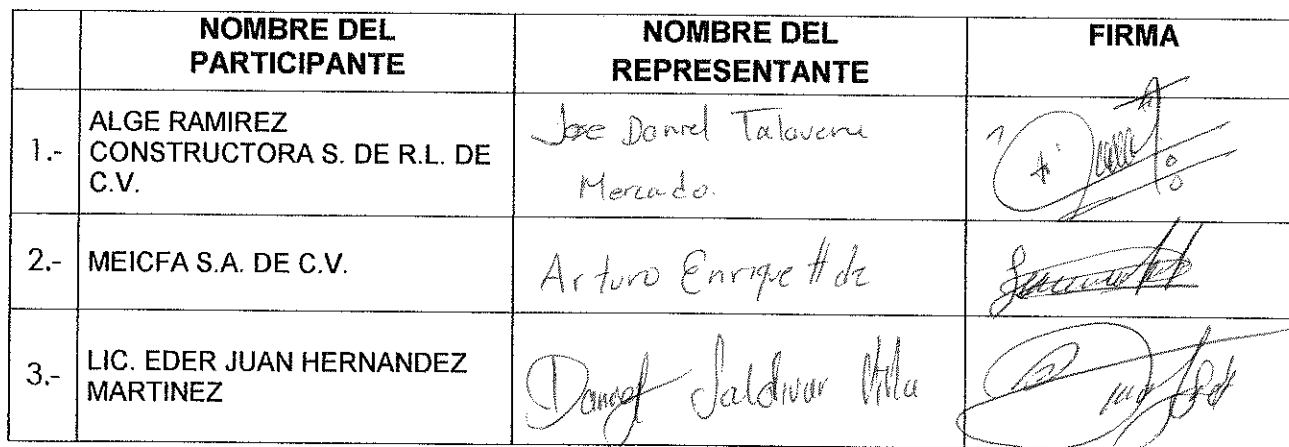 NOMBRE DEL
PARTICIPANTE
NOMBRE DEL
REPRESENTANTE
FIRMA
1.-
ALGE RAMIREZ
CONSTRUCTORA S. DE R.L. DE
C.V.
Jose Daniel Talavera
Mercado.
2.-
MEICFA S.A. DE C.V.
Arturo Enrique Hdz
3.-
LIC. EDER JUAN HERNANDEZ
MARTINEZ
Daniel Saldivar Villa